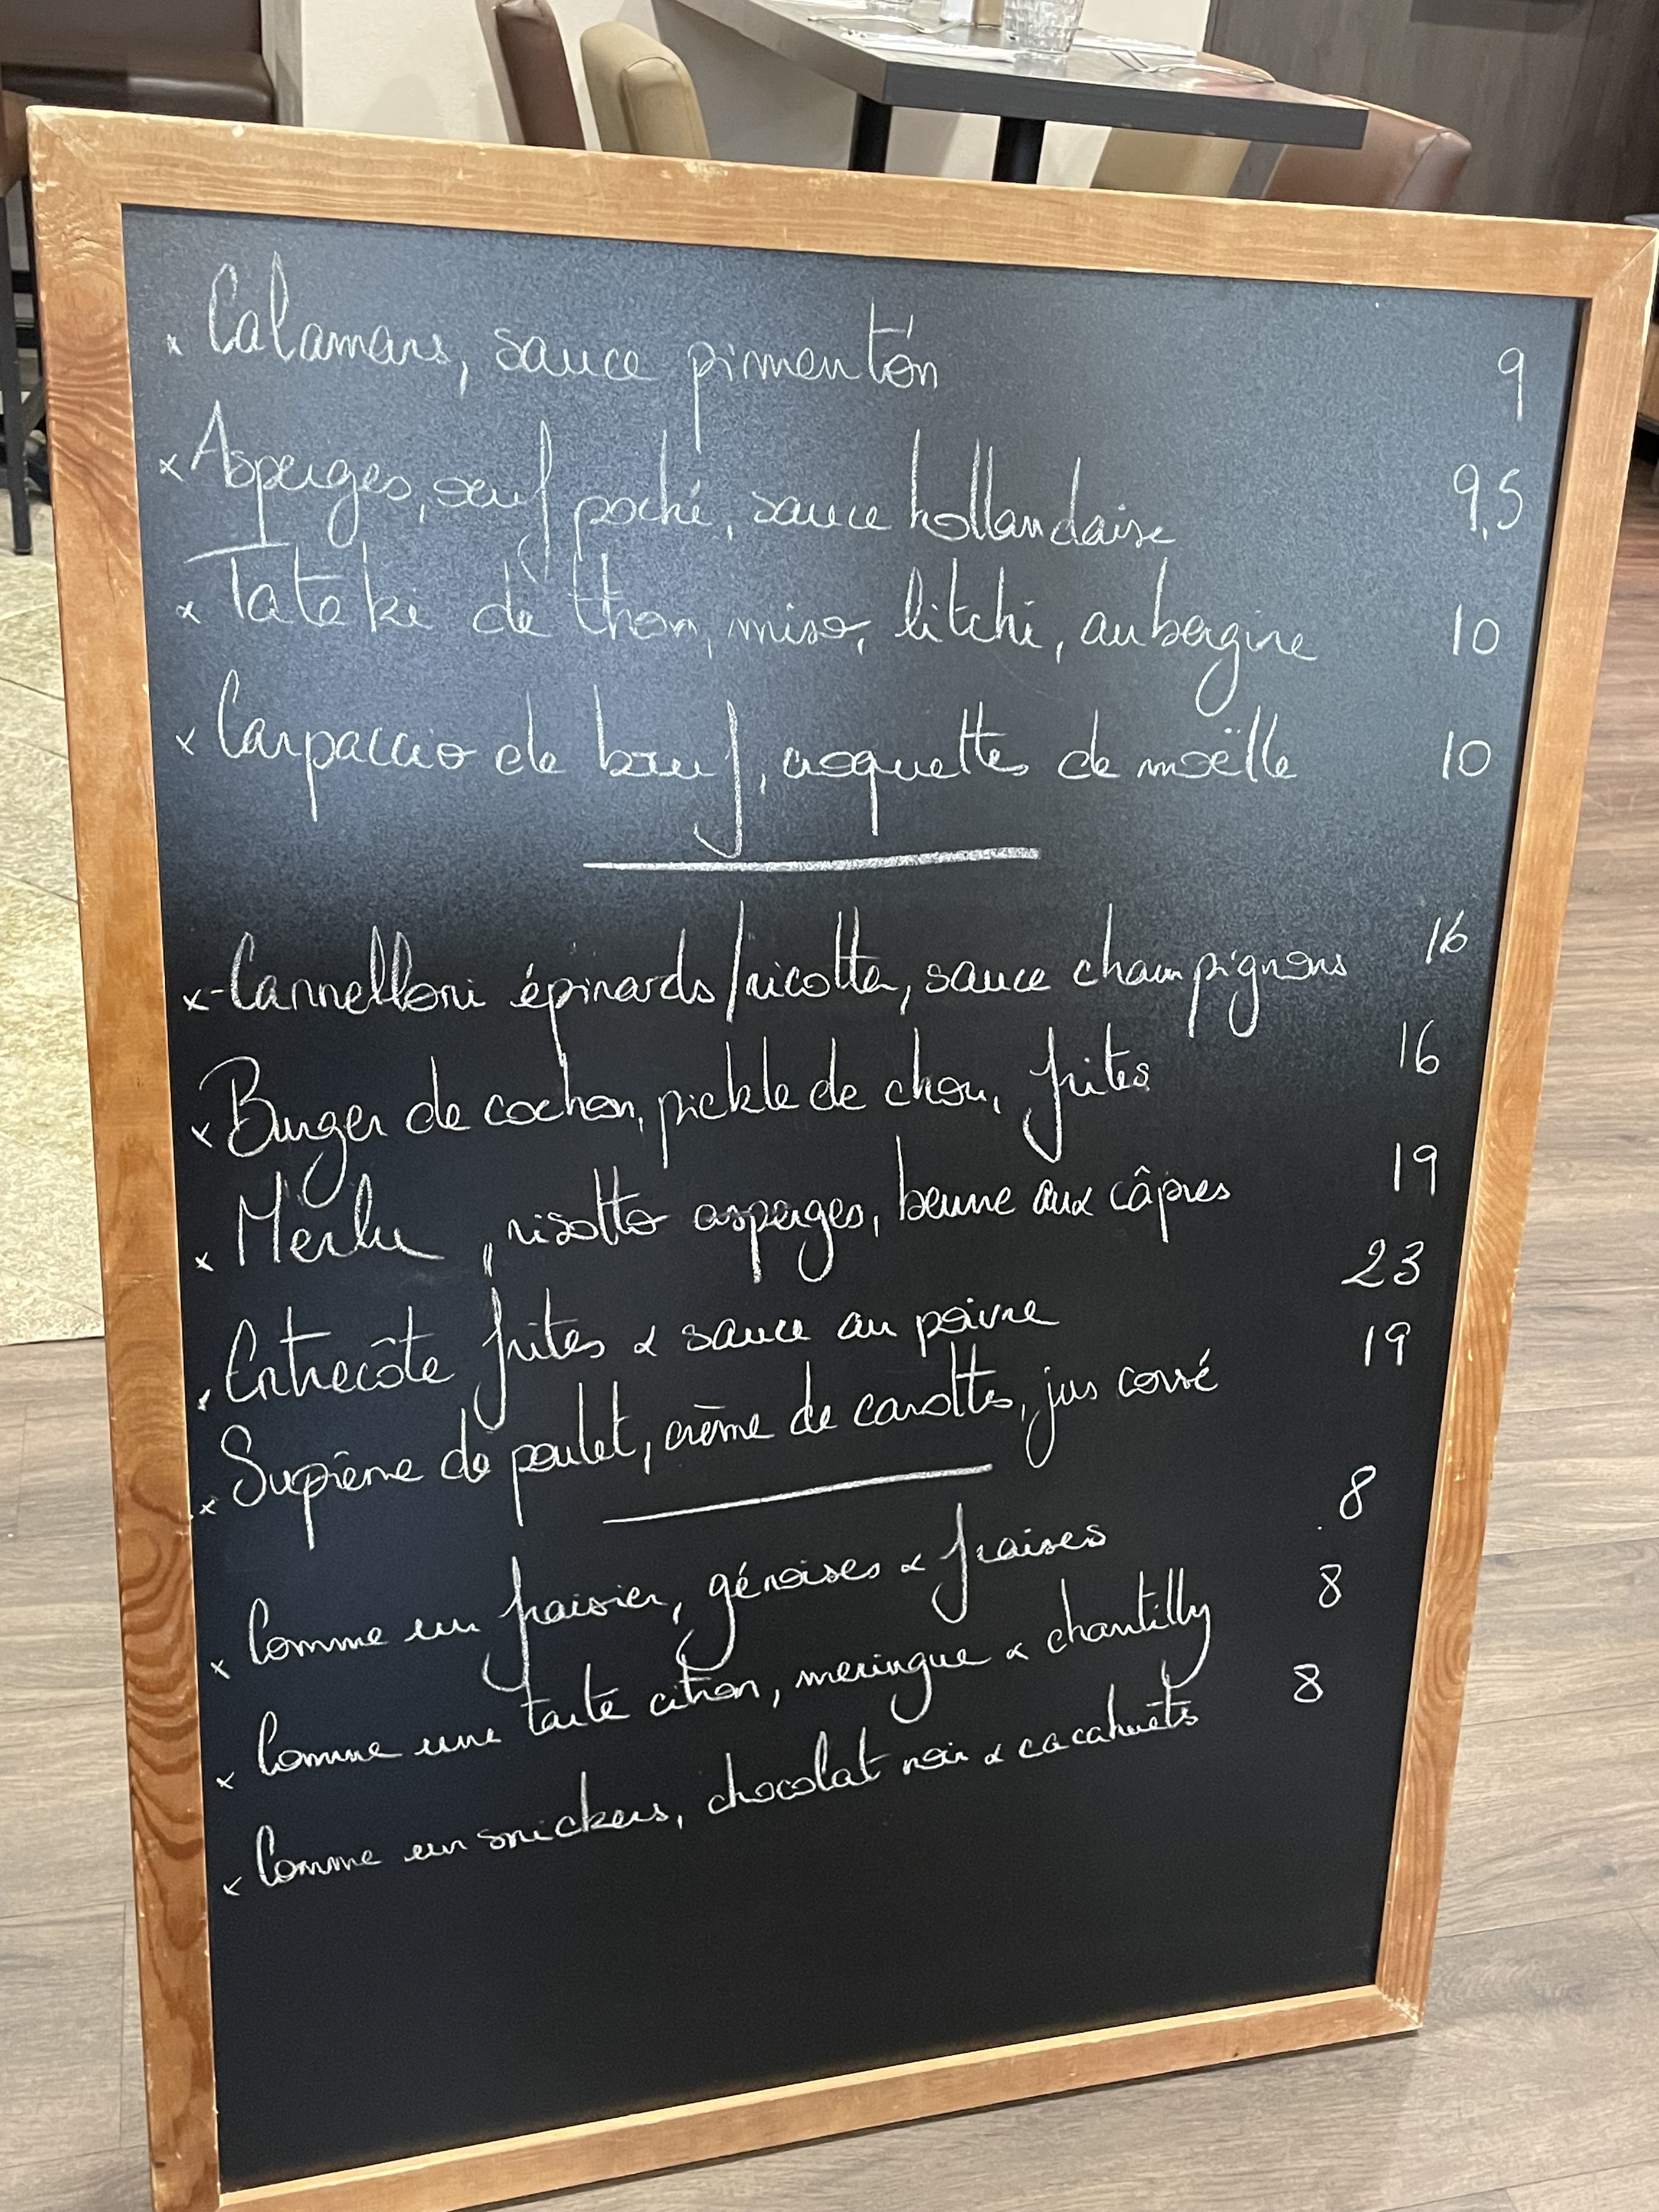 x Calamars, sauce pimentón 9
x Asperges, oeuf poché, sauce hollandaise 9,5
x Tataki de thon, miso, litchi, aubergine 10
x Carpaccio de bœuf, croquettes de moëlle 10
x Cannelloni épinards/ricotta, sauce champignons 16
x Burger de cochon, pickle de chou, frites 16
x Merlu , risotto asperges, beurre aux câpres 19
x Entrecôte frites & sauce au poivre 23
x Suprême de poulet, crème de carottes, jus corsé 19
x Comme un fraisier, génoises & fraises 8
x Comme une tarte citron, meringue & chantilly 8
x Comme un snickers, chocolat noir & cacahuètes 8